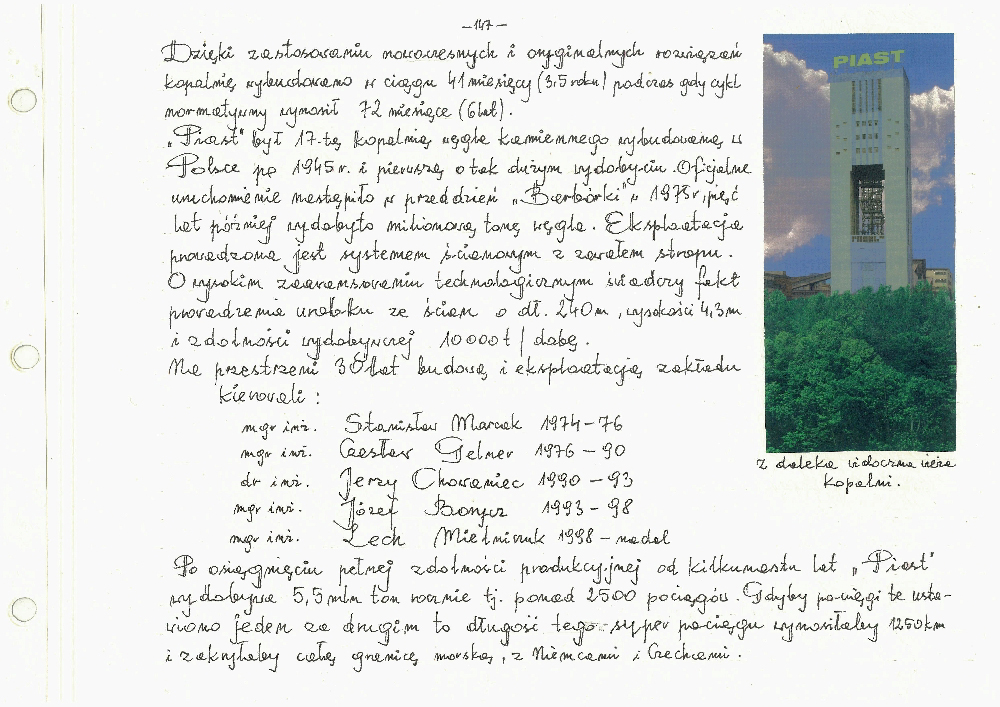 -147-
Dzięki zastosowaniu nowoczesnych i oryginalnych rozwiązań
kopalnię wybudowano w ciągu 41 miesięcy (3,5 roku) podczas gdy cykl
normatywny wynosił 72 miesiące (6 lat).
„Piast” był 17-tą kopalnią węgla kamiennego wybudowaną w
Polsce po 1945 r. i pierwszą o tak dużym wydobyciu. Oficjalne
uruchomienie nastąpiło w przeddzień „Barbórki” w 1975 r, pięć
lat później wydobyto milionową tonę węgla. Eksploatacja
prowadzona jest systemem ścianowym z zawałem stropu.
O wysokim zaawansowaniu technologicznym świadczy fakt
prowadzenia urobku ze ścian o dł. 240m, wysokości 4,3m
i zdolności wydobywczej 10000t / dobę.
Na przestrzeni 30 lat budową i eksploatacją zakładu
kierowali :
mgr inż. Stanisław Marcak 1974-76
mgr inż. Czesław Gelner 1976 - 90
dr inż. Jerzy Chowaniec 1990 - 93
mgr inż. Józef 1993 - 98
mgr inż. Lech Mielniczuk 1998 - nadal
Po osiągnięciu pełnej zdolności produkcyjnej od kilkunastu lat „Piast”
wydobywa 5,5 mln ton rocznie tj. ponad 2500 pociągów. Gdyby pociągi te usta-
wiono jeden za drugim to długość tego super pociągu wynosiłaby 1250 km
i zakryłaby całą granicę morską, z Niemcami i Czechami.
PIAST
z daleka widoczna wieża
kopalni.